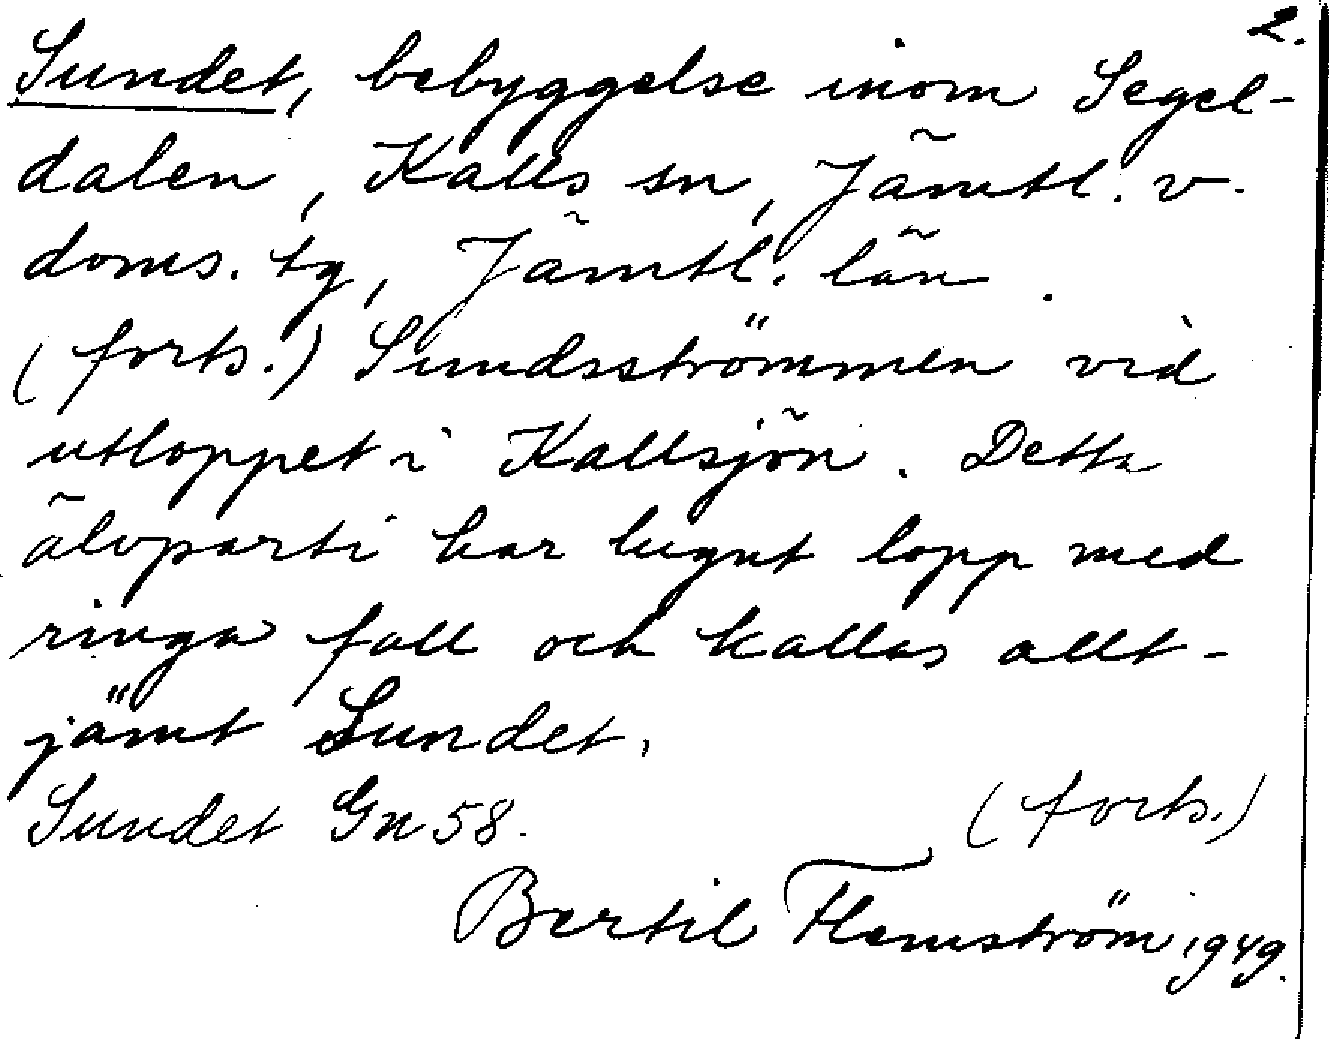 2.
Sundet, bebyggelse inom Segel-
dalen, Kalls sn, Jämtl. v.
doms. tg, Jämtl. län.
(forts.) Sundsströmmen vid
utloppet i Kallsjön. Detta
älvparti har lugnt lopp med
ringa fall och kallas allt-
jämt Sundet.
Sundet Gn 58. (forts.)
Bertil Flemström 1949.